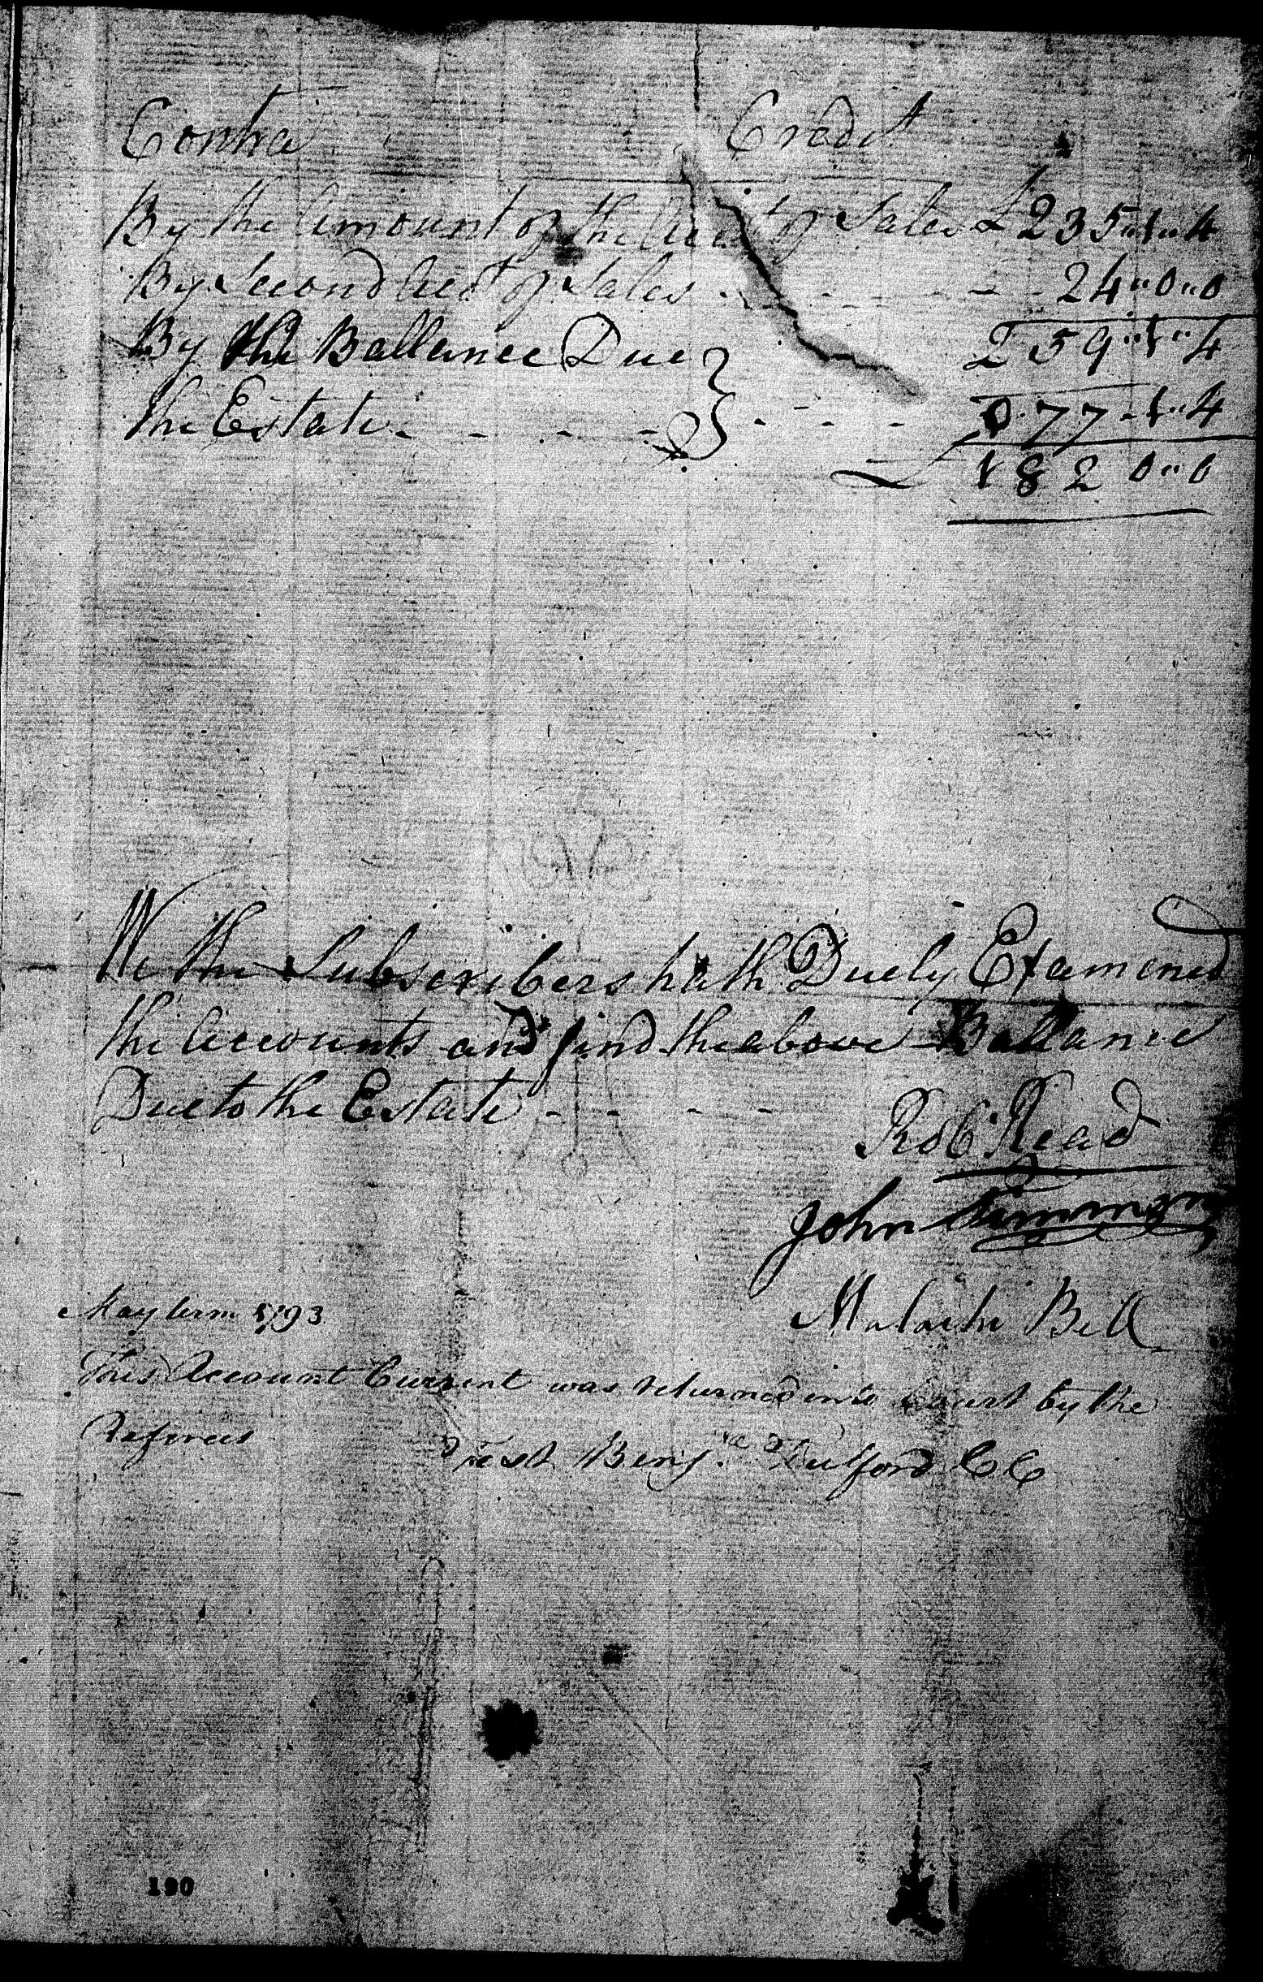 Contra Credit
By the Amount of the Acct of Sales £ 235"1"4
By Second Acct of Sales - - - - - - 24"0"0
259"1"4
By the Ballance Due
the Estate - - - - - - - 077-1"4
£ 182 0"0
We the Subscribers hath Duely Examened
the Accounts and find the above Ballance
Due to the Estate - - - -
Robt Read
John Simmons
Malachi Bell
May term 1793
This Account Current was returned into Court by the
Referees
Test Benja Fulford CC
190